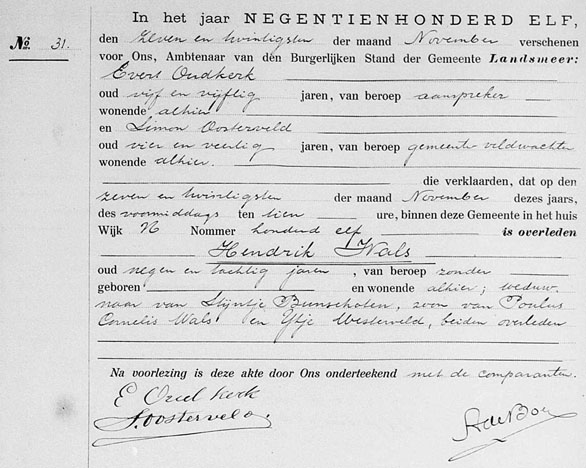 In het jaar NEGENTIENHONDERD ELF,
No. 31. den zeven en twintigsten der maand November verschenen
voor Ons, Ambtenaar van den Burgerlijken Stand der Gemeente Landsmeer:
Evert Oudkerk
oud vijf en vijftig jaren, van beroep aanspreker
wonende alhier
en Simon Oosterveld
oud vier en veertig jaren, van beroep gemeente veldwachter
wonende alhier.
die verklaarden, dat op den
zeven en twintigsten der maand November dezes jaars,
des voormiddags ten tien ure, binnen deze Gemeente in het huis
Wijk N Nommer honderd elf is overleden
Hendrik Wals
oud negen en tachtig jaren, van beroep zonder
geboren en wonende alhier; weduw-
naar van Stijntje Bunschoten, zoon van Poulus
Cornelis Wals en IJtje Westerveld, beiden overleden
Na voorlezing is deze akte door Ons onderteekend met de comparanten.
E Oud kerk
S. Oosterveld
de Boer